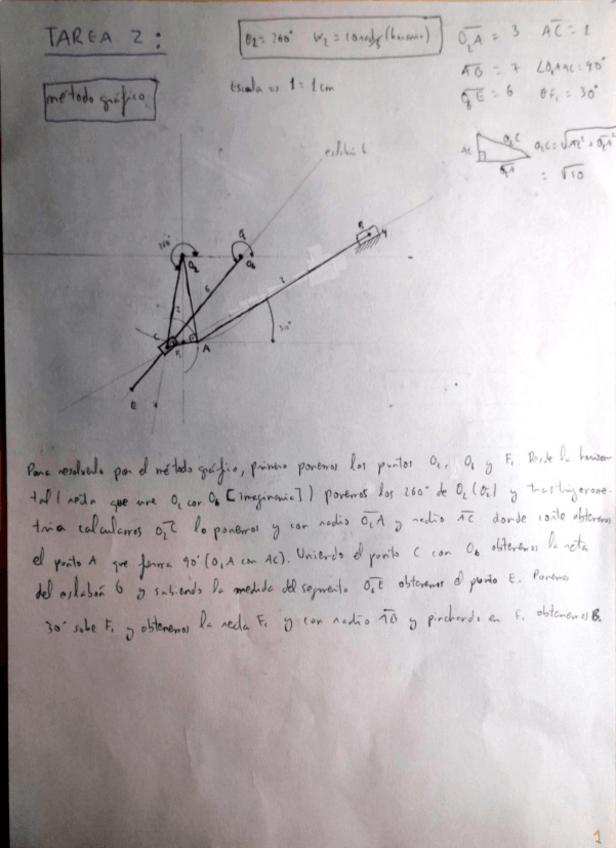 TAREA 2:
θ2 = 260° ω2 = 10 rad/s (horario)
O2A = 3 AC = 1
AB = 7 ∠O2AC = 90°
O6E = 6 θF1 = 30°
método gráfico
Escala => 1 = 1 cm
AC O2C O2C = √AC² + O2A²
O2A
= √10
eslabón 6
260°
O2
O6
B
4
6
2
C
F1
A
30°
E
Para resolverlo por el método gráfico, primero ponemos los puntos O2, O6 y F1. Desde la horizon
tal (recta que une O2 con O6 [imaginaria]) ponemos los 260° de O2 (θ2) y tras trigonome
tría calculamos O2C lo ponemos y con radio O2A y radio AC donde corte obtenemos
el punto A que forma 90° (O2A con AC). Uniendo el punto C con O6 obtenemos la recta
del eslabón 6 y sabiendo la medida del segmento O6E obtenemos el punto E. Ponemos
30° sobre F1 y obtenemos la recta F1 y con radio AB y pinchando en F1 obtenemos B.
1